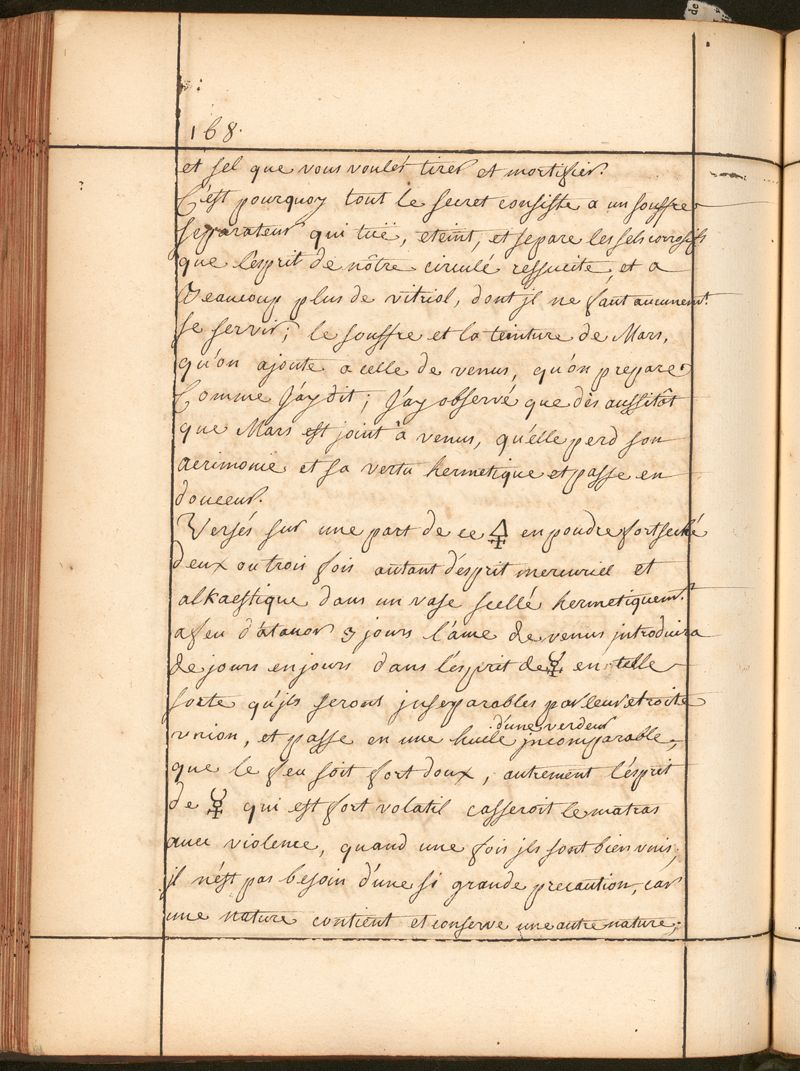 168.
et sel que vous voulés tirer et mortifier.
C'est pourquoy tout le secret consiste a un souffre
separateur qui tuë, eteint, et separe les sels corrosifs
que l'esprit de nôtre circulé ressucite, et a
Beaucoup plus de vitriol, dont jl ne faut aucunemt.
se servir; le souffre et la teinture de Mars,
qu'on ajoute a celle de venus, qu'on prepare
Comme J'ay dit; J'ay observé que dès aussitôt
que Mars est joint à venus, qu'elle perd son
acrimonie et sa vertu hermetique et passe en
douceur.
Versés sur une part de ce 🜍 en poudre fort seché
deux ou trois fois autant d'esprit mercuriel et
alkaestique dans un vase scellé hermetiquemt.
a feu d'atanor 3 jours l'ame de venus jntroduira
de jours en jours dans l'esprit de ☿ en telle
sorte qu'jls seront jnseparables par leur etroite
vnion, et passe en une huile d'une verdeur jncomparable,
que le feu soit fort doux, autrement l'esprit
de ☿ qui est fort volatil casseroit le matras
avec violence, quand une fois jls sont bien vnis,
jl n'est pas besoin d'une si grande precaution, car
une nature contient et conserve une autre nature;
de